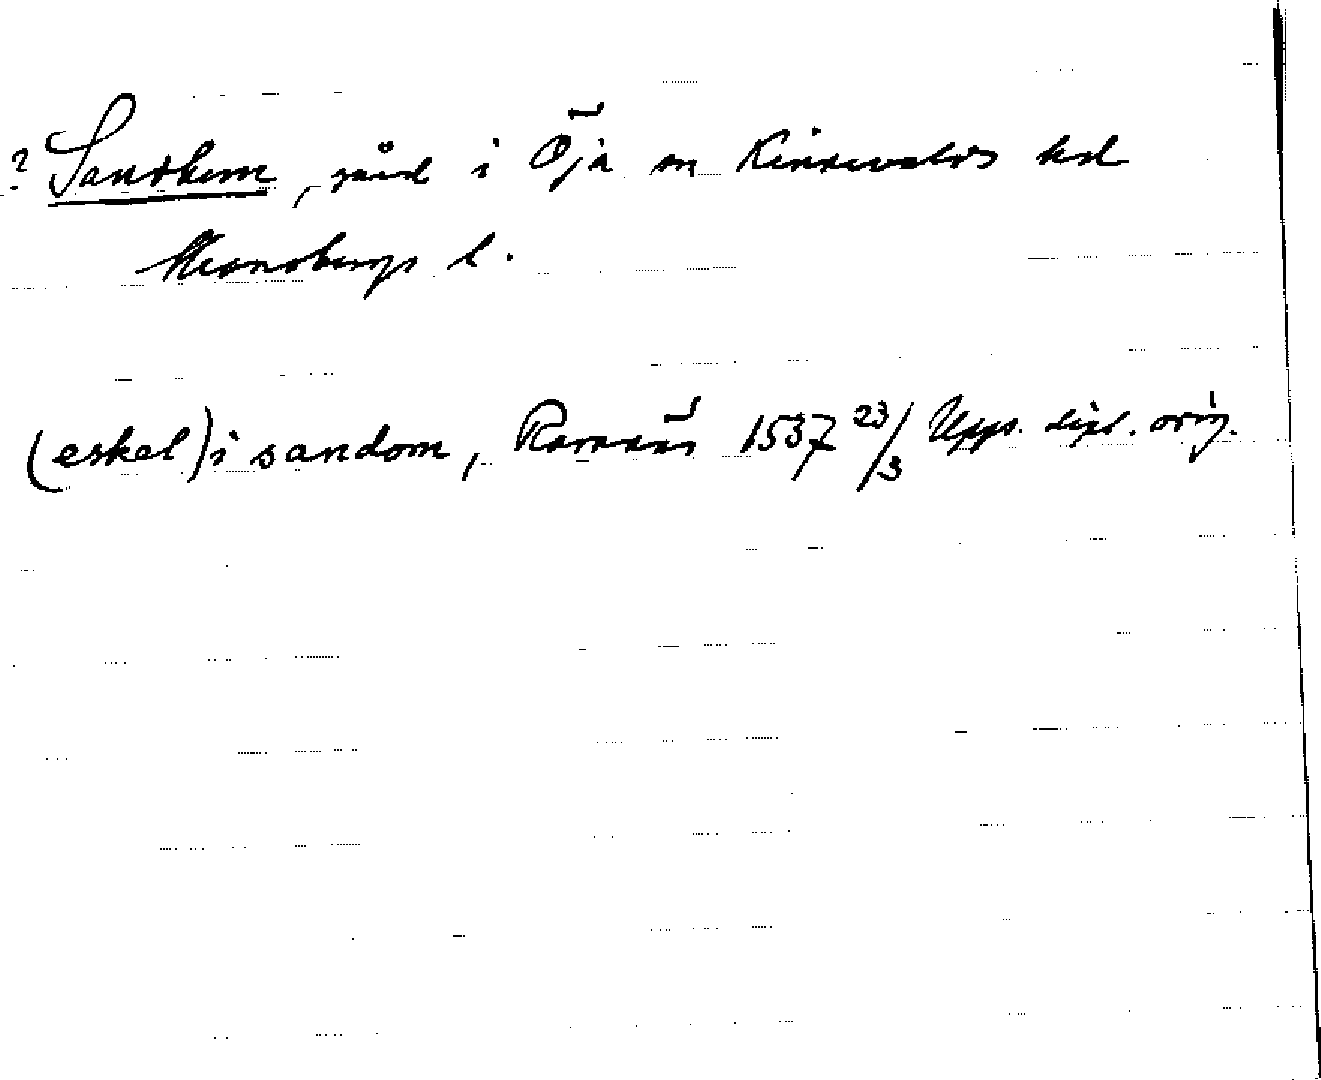 ? Sandhem, gård i Öja sn Kinnevalds hd
Kronobergs l.
(eskel) i sandom, Ramnäs 1537 23/3 Upps. dipl. orig.